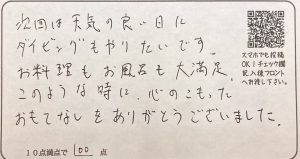 次回は天気の良い日に
ダイビングもやりたいです。
お料理もお風呂も大満足。
このような時に、心のこもった
おもてなしをありがとうございました。
10点満点で 100 点
スマホでも投稿
OK！チェック欄
記入後フロント
へお渡し下さい。